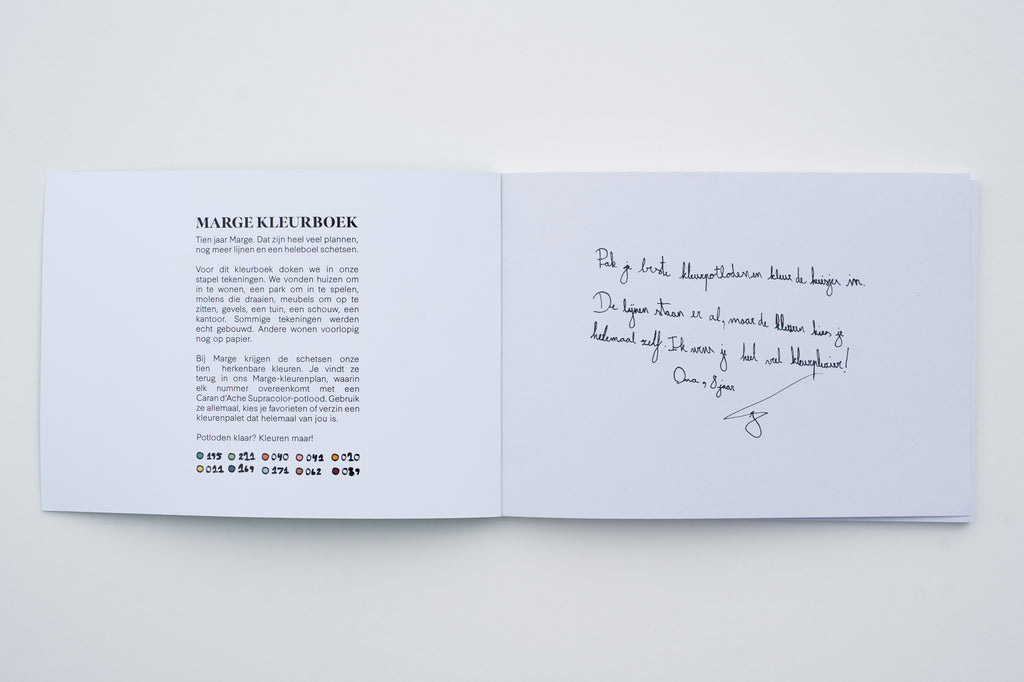 MARGE KLEURBOEK
Tien jaar Marge. Dat zijn heel veel plannen,
nog meer lijnen en een heleboel schetsen.
Voor dit kleurboek doken we in onze
stapel tekeningen. We vonden huizen om
in te wonen, een park om in te spelen,
molens die draaien, meubels om op te
zitten, gevels, een tuin, een schouw, een
kantoor. Sommige tekeningen werden
echt gebouwd. Andere wonen voorlopig
nog op papier.
Bij Marge krijgen de schetsen onze
tien herkenbare kleuren. Je vindt ze
terug in ons Marge-kleurenplan, waarin
elk nummer overeenkomt met een
Caran d'Ache Supracolor-potlood. Gebruik
ze allemaal, kies je favorieten of verzin een
kleurenpalet dat helemaal van jou is.
Potloden klaar? Kleuren maar!
195 211 040 041 010
011 169 171 062 089
Pak je beste kleurpotloden en kleur de huisjes in.
De lijnen staan er al, maar de kleuren kies je
helemaal zelf. Ik wens je heel veel kleurplezier!
Ona, 8 jaar